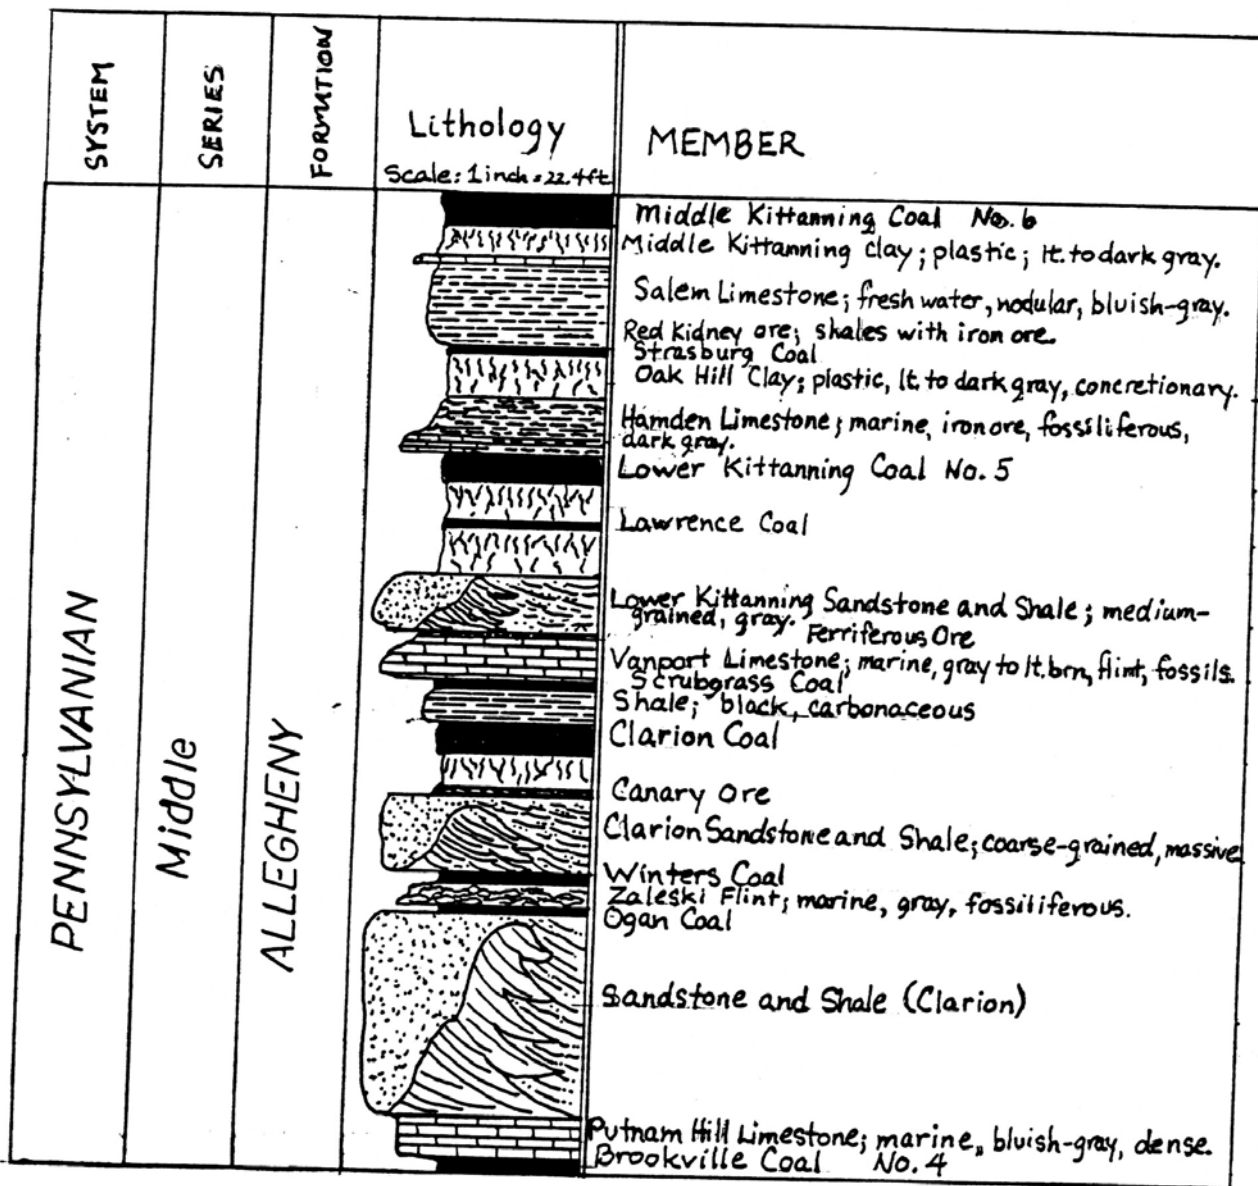 SYSTEM
SERIES
FORMATION
Lithology
Scale: 1 inch = 22.4 ft
MEMBER
PENNSYLVANIAN
Middle
ALLEGHENY
Middle Kittanning Coal No. 6
Middle Kittanning clay; plastic; lt. to dark gray.
Salem Limestone; fresh water, nodular, bluish-gray.
Red Kidney ore; shales with iron ore.
Strasburg Coal
Oak Hill Clay; plastic, lt. to dark gray, concretionary.
Hamden Limestone; marine, iron ore, fossiliferous,
dark gray.
Lower Kittanning Coal No. 5
Lawrence Coal
Lower Kittanning Sandstone and Shale; medium-
grained, gray.
Ferriferous Ore
Vanport Limestone; marine, gray to lt. brn, flint, fossils.
Scrubgrass Coal
Shale; black, carbonaceous
Clarion Coal
Canary Ore
Clarion Sandstone and Shale; coarse-grained, massive
Winters Coal
Zaleski Flint; marine, gray, fossiliferous.
Ogan Coal
Sandstone and Shale (Clarion)
Putnam Hill Limestone; marine, bluish-gray, dense.
Brookville Coal No. 4